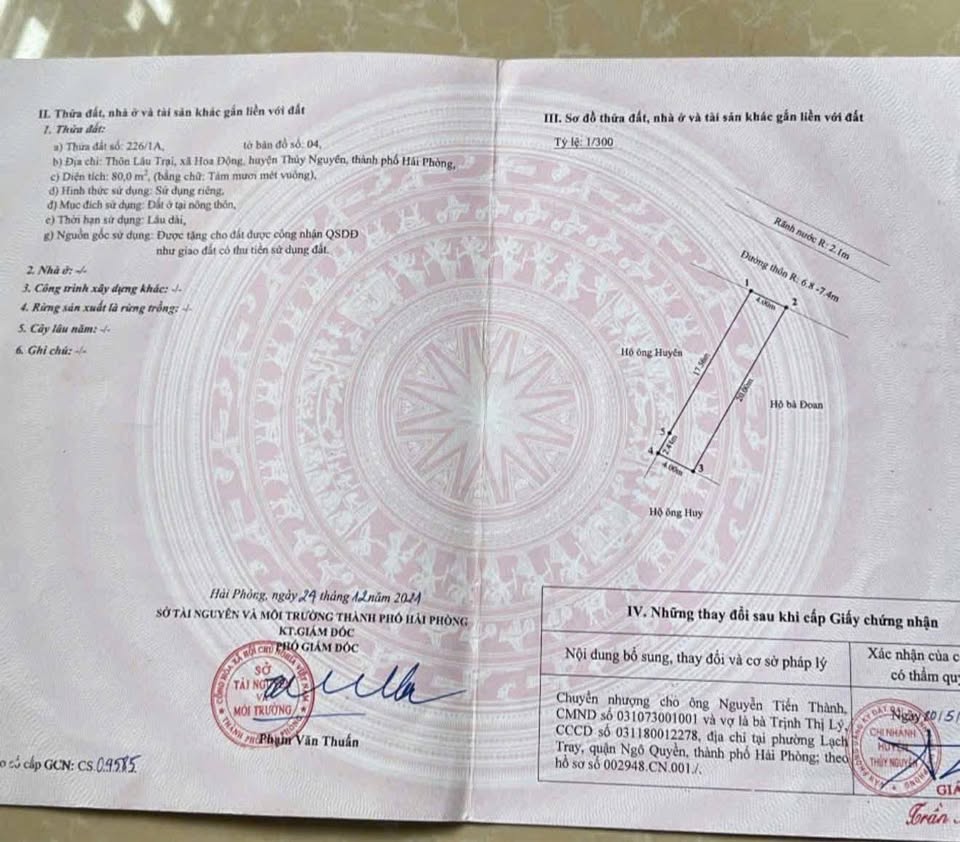 II. Thửa đất, nhà ở và tài sản khác gắn liền với đất
1. Thửa đất:
a) Thửa đất số: 226/1A, tờ bản đồ số: 04,
b) Địa chỉ: Thôn Lâu Trại, xã Hoa Động, huyện Thủy Nguyên, thành phố Hải Phòng,
c) Diện tích: 80,0 m², (bằng chữ: Tám mươi mét vuông),
d) Hình thức sử dụng: Sử dụng riêng,
đ) Mục đích sử dụng: Đất ở tại nông thôn,
e) Thời hạn sử dụng: Lâu dài,
g) Nguồn gốc sử dụng: Được tặng cho đất được công nhận QSDĐ
như giao đất có thu tiền sử dụng đất.
2. Nhà ở: -/-
3. Công trình xây dựng khác: -/-
4. Rừng sản xuất là rừng trồng: -/-
5. Cây lâu năm: -/-
6. Ghi chú: -/-
Hải Phòng, ngày 29 tháng 12 năm 2021
SỞ TÀI NGUYÊN VÀ MÔI TRƯỜNG THÀNH PHỐ HẢI PHÒNG
KT.GIÁM ĐỐC
PHÓ GIÁM ĐỐC
SỞ
TÀI NGUYÊN
VÀ
MÔI TRƯỜNG
Phạm Văn Thuấn
số cấp GCN: CS.09585
III. Sơ đồ thửa đất, nhà ở và tài sản khác gắn liền với đất
Tỷ lệ: 1/300
Rãnh nước R: 2.1m
Đường thôn R: 6.8 -7.4m
1
4.00m
2
Hộ ông Huyên
17.56m
20.00m
Hộ bà Đoan
5
2.41m
4
4.00m
3
Hộ ông Huy
IV. Những thay đổi sau khi cấp Giấy chứng nhận
Nội dung bổ sung, thay đổi và cơ sở pháp lý
Xác nhận của c
có thẩm quy
Chuyển nhượng cho ông Nguyễn Tiến Thành,
CMND số 031073001001 và vợ là bà Trịnh Thị Lý,
CCCD số 031180012278, địa chỉ tại phường Lạch
Tray, quận Ngô Quyền, thành phố Hải Phòng; theo
hồ sơ số 002948.CN.001./.
CHI NHÁNH
HUYỆN
THỦY NGUYÊN
GIÁ
Trần